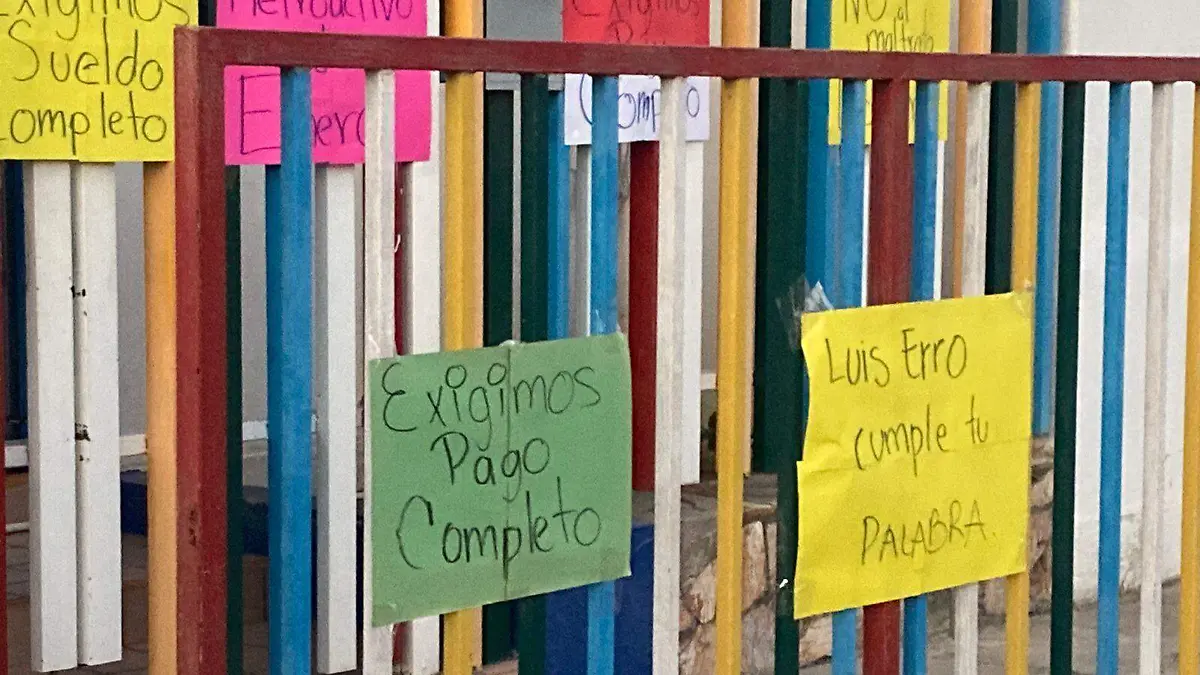 Exigimos
Sueldo
Completo
Retroactivo
Enero
Exigimos
Pago
Completo
NO al
maltrato
Exigimos
Pago
Completo
Luis Erro
cumple tu
PALABRA.